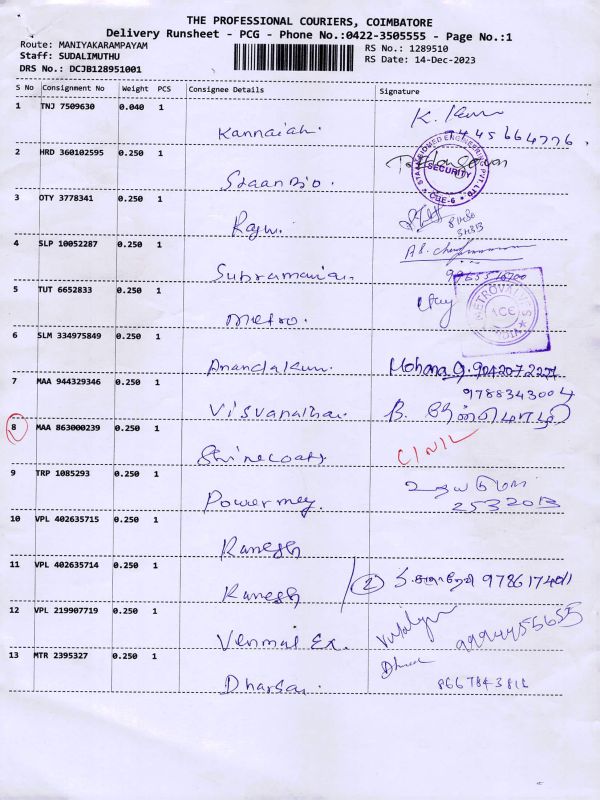 THE PROFESSIONAL COURIERS, COIMBATORE
Delivery Runsheet - PCG - Phone No.:0422-3505555 - Page No.:1
Route: MANIYAKARAMPAYAM RS No.: 1289510
Staff: SUDALIMUTHU RS Date: 14-Dec-2023
DRS No.: DCJB128951001
S No Consignment No Weight PCS Consignee Details Signature
1 TNJ 7509630 0.040 1
Kannaiah. K.
2 HRD 360102595 0.250 1
SECURITY
CBE-6
3 OTY 3778341 0.250 1
Rajni
4 SLP 10052287 0.250 1
Subramania.
5 TUT 6652833 0.250 1
Metro.
6 SLM 334975849 0.250 1
Anandakum. Mohana
7 MAA 944329346 0.250 1 9788343004
Visvanatha. B.
8 MAA 863000239 0.250 1
Shinecoats
9 TRP 1085293 0.250 1
Powermey. 2532013
10 VPL 402635715 0.250 1
Ramesh
11 VPL 402635714 0.250 1
Ramesh 2
12 VPL 219907719 0.250 1
Venmal Ex. 9994455655
13 MTR 2395327 0.250 1
Dharsai. 8667843812